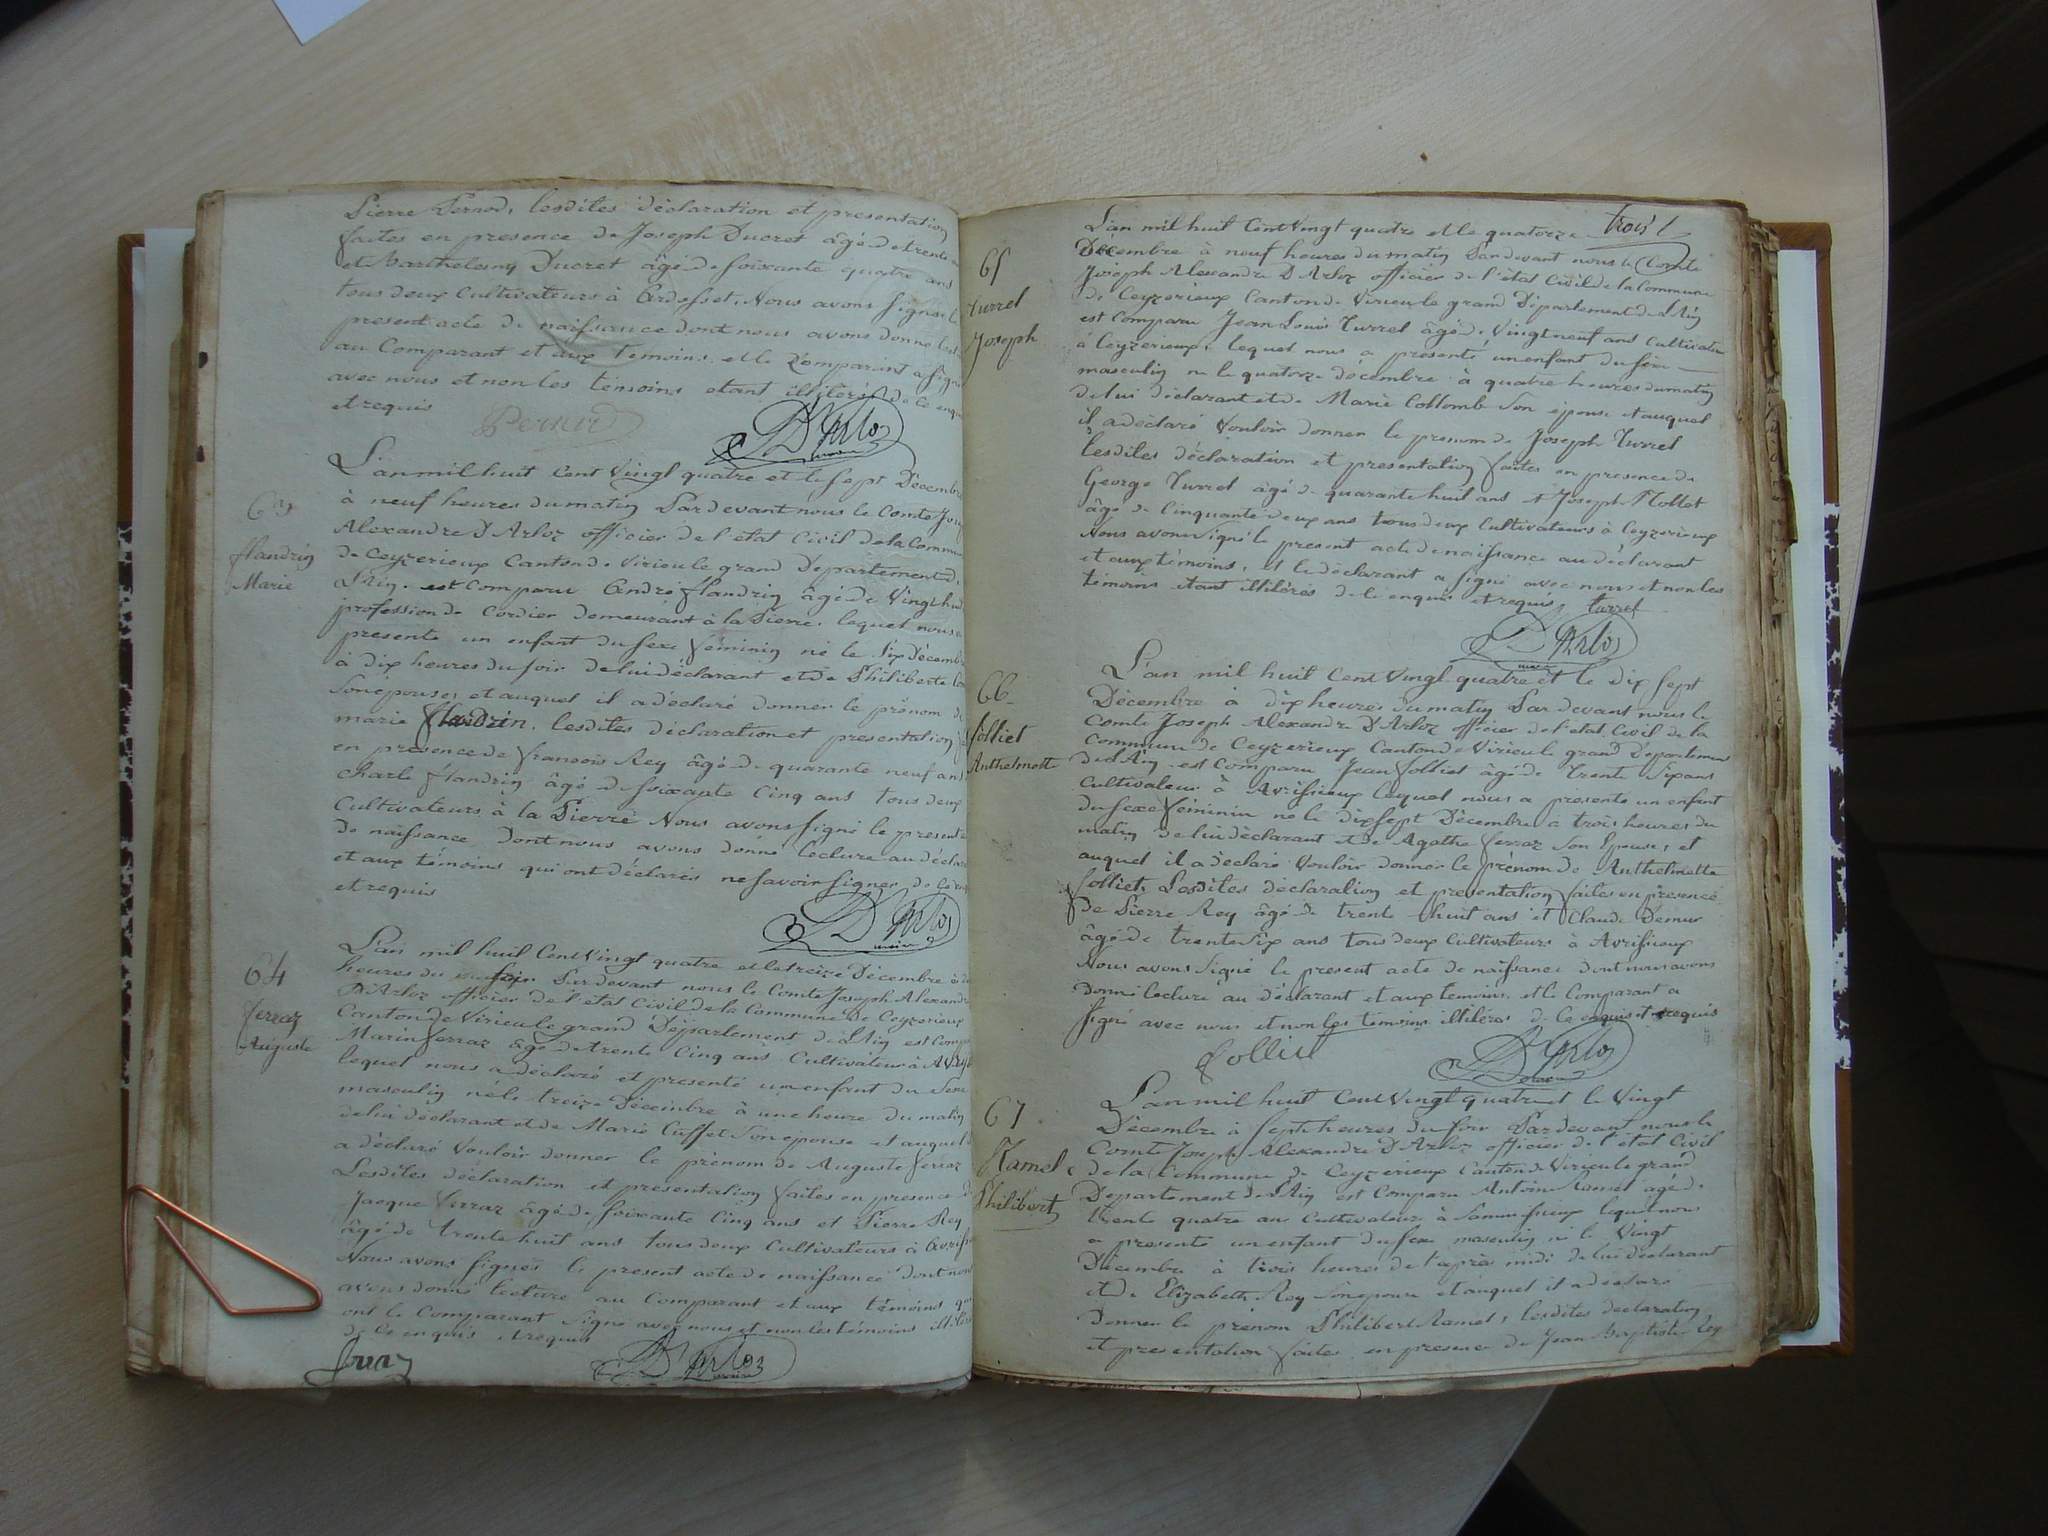 Pierre Pernod, lesdites déclaration et presentation
faites en presence de Joseph Ducret âgé de trente
et Barthelemy Ducret âgé de soixante quatre ans
tous deux Cultivateurs à Ardosset. Nous avons signé le
present acte de naissance dont nous avons donné lect
au Comparant et aux temoins. et le Comparant a signé
avec nous et non les témoins etant illitérés de ce enq
et requis
Pernod
D'Arloz
maire
63
flandrin
Marie
L'an mil huit cent vingt quatre et le sept Décembre
à neuf heures du matin Pardevant nous le Comte Jos
Alexandre D'Arloz officier de l'état Civil de la Commu
de Ceyzerieux Canton de Virieu le grand Département de
L'Ain. est Comparu André flandrin âgé de Vingt hui
profession de Cordier demeurant à la Pierre. lequel nous a
presenté un enfant du sexe féminin né le six décemb
à dix heures du soir de lui déclarant et de Philiberte
son épouse, et auquel il a déclaré donner le prénom de
marie flandrin. lesdites déclaration et presentation
en presence de françois Rey âgé de quarante neuf ans
Charle flandrin âgé de soixante Cinq ans tous deux
Cultivateurs à la Pierre Nous avons signé le present a
de naissance dont nous avons donné lecture au déclar
et aux témoins qui ont déclarés ne savoir signer de ce en
et requis
D'Arloz
maire
64
ferraz
Auguste
L'an mil huit Cent Vingt quatre et le treize Décembre à
heures du soir Pardevant nous le Comte Joseph Alexandre
D'Arloz officier de l'état Civil de la Commune de Ceyzerieux
Canton de Virieu le grand Département de L'Ain est Compa
Marin ferraz âgé de trente Cinq ans Cultivateur à
lequel nous a déclaré et presenté un enfant du sexe
masculin né le treize Décembre à une heure du matin
de lui déclarant et de Marie Cusset son épouse et auquel
a déclaré Vouloir donner le prénom de Auguste ferraz
Lesdites déclaration et presentation faites en presence de
Jacque ferraz âgé de soixante Cinq ans et Pierre Rey
âgé de trente huit ans tous deux Cultivateurs à
Nous avons signé le present acte de naissance dont nous
avons donné lecture au Comparant et aux témoins
ont le Comparant signé avec nous et non les témoins
de ce enquis et requis
D'Arloz
maire
trois
65
turrel
Joseph
L'an mil huit Cent Vingt quatre et le quatorze
Décembre à neuf heures du matin Pardevant nous le Comte
Joseph Alexandre D'Arloz officier de l'état Civil de la Commune
de Ceyzerieux Canton de Virieu le grand Département de L'Ain
est Comparu Jean Louis Turrel âgé de Vingt neuf ans Cultivateur
à Ceyzerieux. lequel nous a presenté un enfant du sexe
masculin né le quatorze décembre à quatre heures du matin
de lui déclarant et de Marie Collomb son épouse et auquel
il a déclaré Vouloir donner le prenom de Joseph Turrel
lesdites déclaration et presentation faites en presence de
George Turrel âgé de quarante huit ans et Joseph Mollet
âgé de Cinquante deux ans tous deux Cultivateurs à Ceyzerieux
Nous avons signé le present acte de naissance au déclarant
et aux témoins, et le déclarant a signé avec nous et non les
témoins étant illitérés de ce enquis et requis, turrel
D'Arloz
maire
66
folliet
Anthelmette
L'an mil huit Cent Vingt quatre et le dix sept
Décembre à dix heures du matin Pardevant nous le
Comte Joseph Alexandre D'Arloz officier de l'état Civil de la
Commune de Ceyzerieux Canton de Virieu le grand Département
de L'Ain est Comparu Jean folliet âgé de trente six ans
Cultivateur à Avrissieux lequel nous a presenté un enfant
du sexe féminin né le dix sept Décembre à trois heures du
matin de lui déclarant et de Agathe ferraz son Epouse, et
auquel il a déclaré Vouloir donner le prénom de Anthelmette
folliet, Lesdites déclaration et presentation faites en presence
de Pierre Rey âgé de trente huit ans et Claude Demur
âgé de trente six ans tous deux Cultivateurs à Avrissieux
Nous avons signé le present acte de naissance dont nous avons
donné lecture au déclarant et aux temoins, et le Comparant a
signé avec nous et non les témoins illitérés de ce enquis et requis
folliet
D'Arloz
maire
67
Ramel
Philibert
L'an mil huit Cent Vingt quatre et le Vingt
Décembre à sept heures du soir Pardevant nous le
Comte Joseph Alexandre D'Arloz officier de l'état Civil
de la Commune de Ceyzerieux Canton de Virieu le grand
Département de L'Ain est Comparu Antoine Ramel âgé de
trente quatre ans Cultivateur à lequel nous
a presenté un enfant du sexe masculin né le Vingt
Décembre à trois heures de l'après midi de lui déclarant
et de Elizabeth Rey son épouse et auquel il a déclaré
donner le prénom Philibert Ramel, lesdites déclaration
et presentation faites en presence de Jean Baptiste Rey